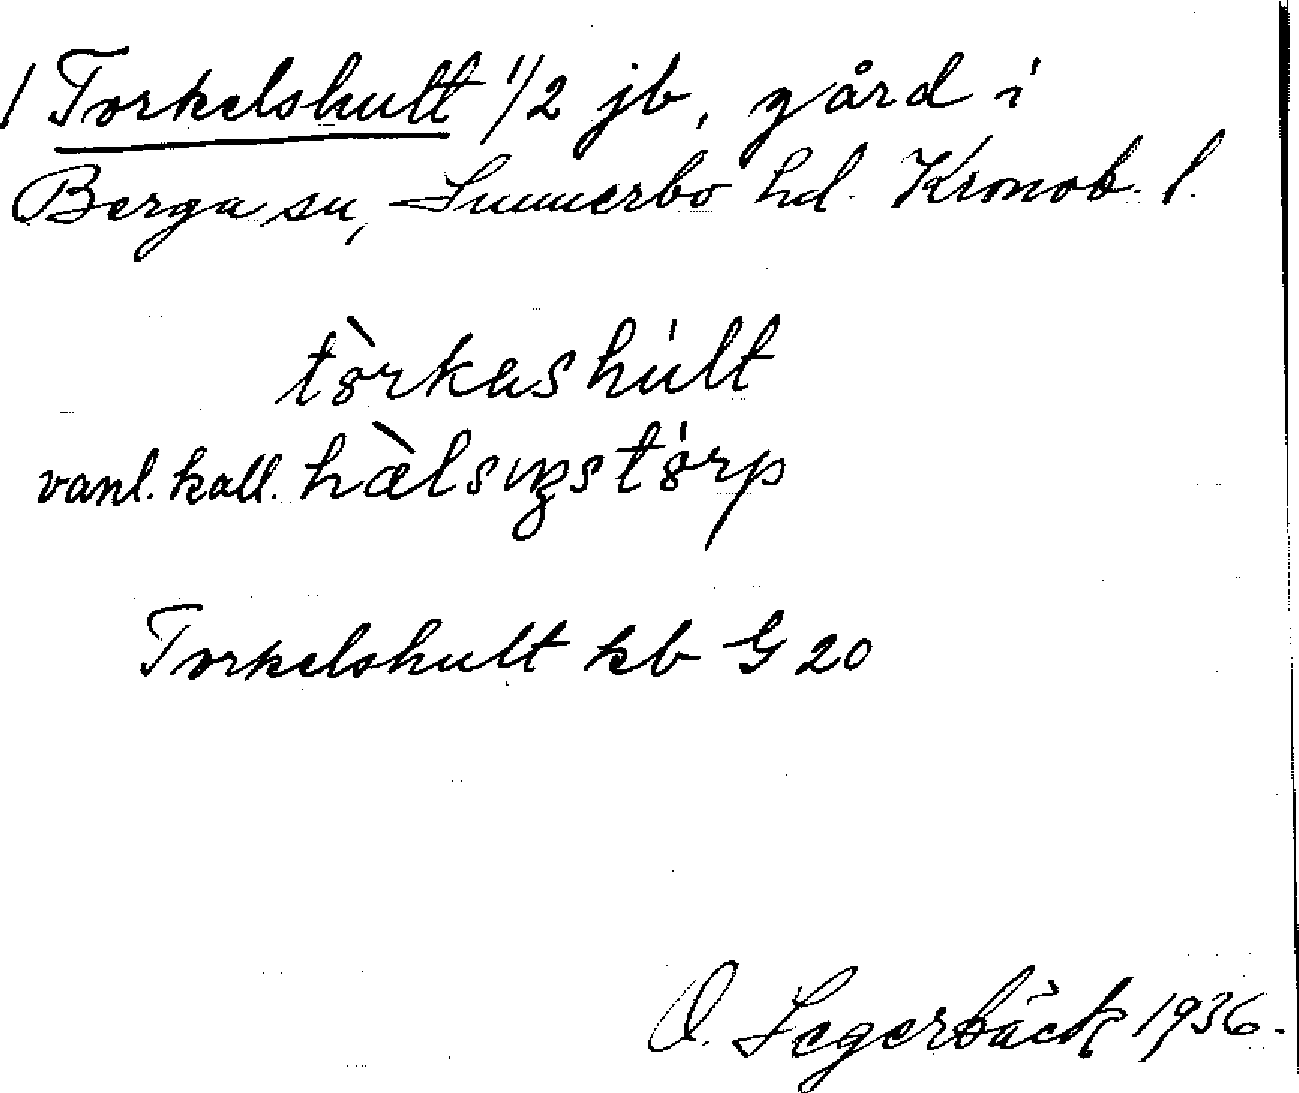 / Torkelshult 1/2 jb, gård i
Berga sn, Sunnerbo hd. Kronob. l.
tòrkashúlt
vanl. kall. hæ̀lsıŋstórp
Torkelshult kb G 20
O. Segerbäck 1936.